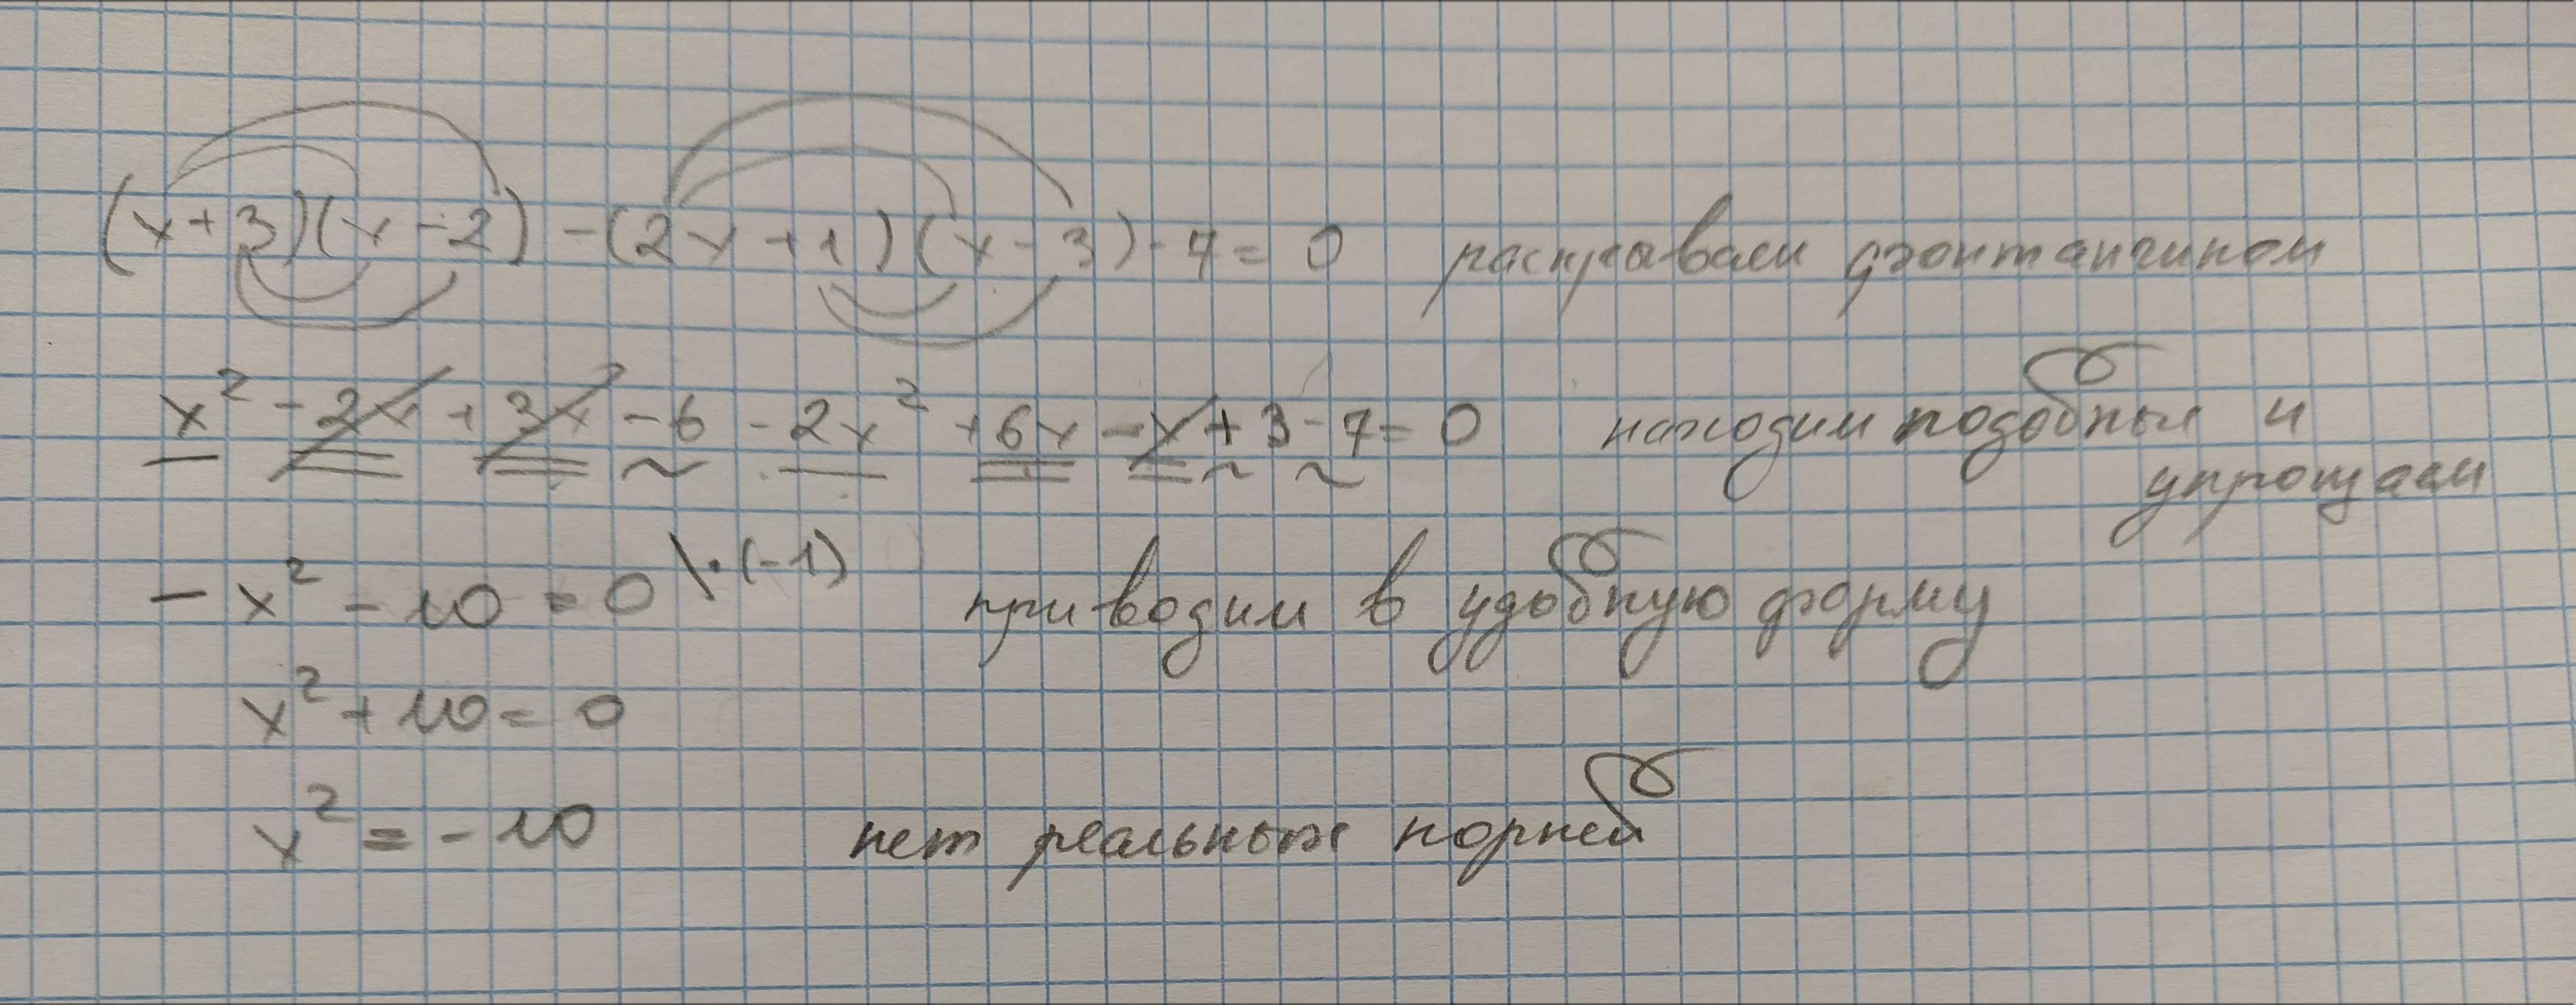 (x+3)(x-2) - (2x+1)(x-3) - 7 = 0 раскрываем фонтанчиком
x² - 2x + 3x - 6 - 2x² + 6x - x + 3 - 7 = 0 находим подобные и
упрощаем
- x² - 10 = 0 \ · (-1) приводим в удобную форму
x² + 10 = 0
x² = - 10 нет реальных корней